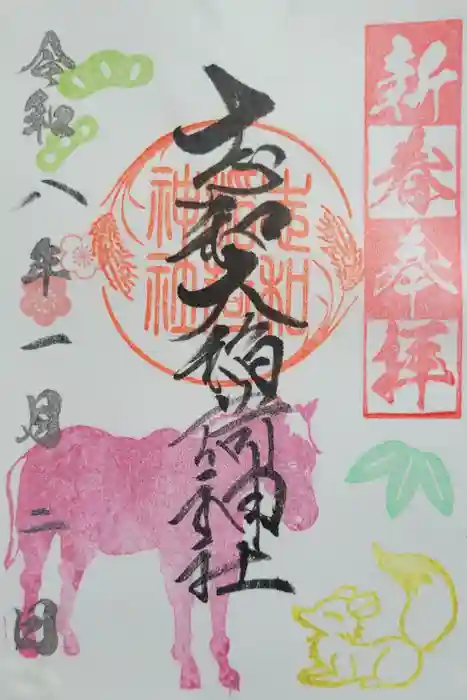 新春奉拝
志和大稲荷神社
志和稲荷神社
令和八年一月二日